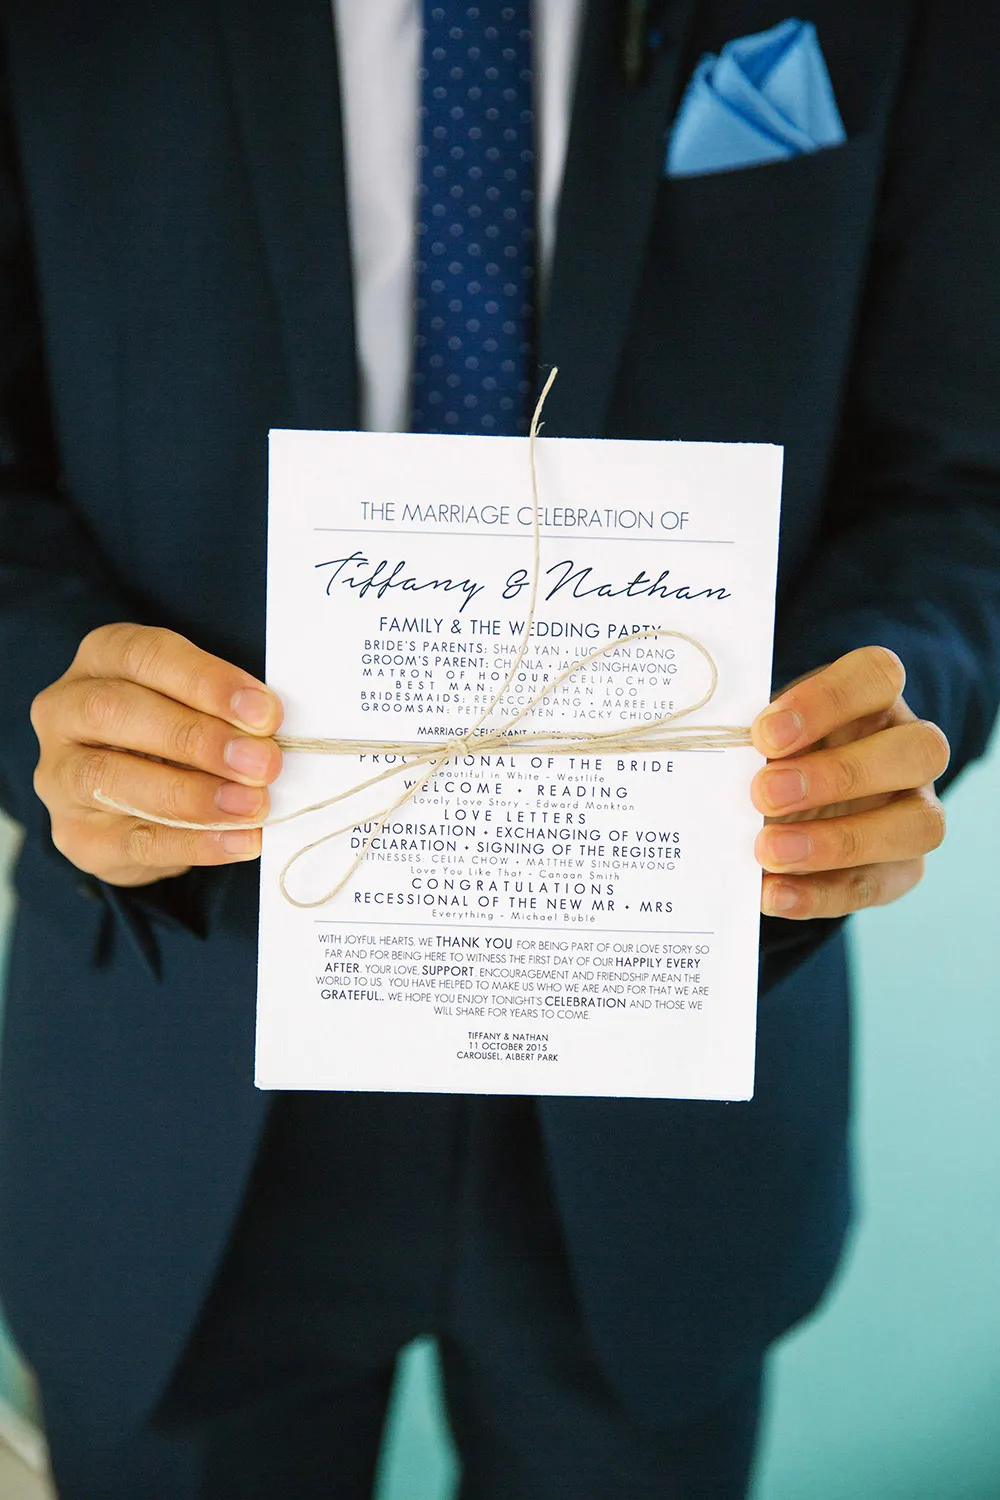 THE MARRIAGE CELEBRATION OF
Tiffany & Nathan
FAMILY & THE WEDDING PARTY
BRIDE'S PARENTS: SHAO YAN • LUC CAN DANG
GROOM'S PARENT: CHANLA • JACK SINGHAVONG
MATRON OF HONOUR: CELIA CHOW
BEST MAN: JONATHAN LOO
BRIDESMAIDS: REBECCA DANG • MAREE LEE
GROOMSAN: PETER NGUYEN • JACKY CHIONG
MARRIAGE CELEBRANT:
PROCESSIONAL OF THE BRIDE
Beautiful in White - Westlife
WELCOME • READING
Lovely Love Story - Edward Monkton
LOVE LETTERS
AUTHORISATION • EXCHANGING OF VOWS
DECLARATION • SIGNING OF THE REGISTER
WITNESSES: CELIA CHOW • MATTHEW SINGHAVONG
Love You Like That - Canaan Smith
CONGRATULATIONS
RECESSIONAL OF THE NEW MR • MRS
Everything - Michael Bublé
WITH JOYFUL HEARTS, WE THANK YOU FOR BEING PART OF OUR LOVE STORY SO
FAR AND FOR BEING HERE TO WITNESS THE FIRST DAY OF OUR HAPPILY EVERY
AFTER. YOUR LOVE, SUPPORT, ENCOURAGEMENT AND FRIENDSHIP MEAN THE
WORLD TO US. YOU HAVE HELPED TO MAKE US WHO WE ARE AND FOR THAT WE ARE
GRATEFUL.. WE HOPE YOU ENJOY TONIGHT'S CELEBRATION AND THOSE WE
WILL SHARE FOR YEARS TO COME.
TIFFANY & NATHAN
11 OCTOBER 2015
CAROUSEL, ALBERT PARK